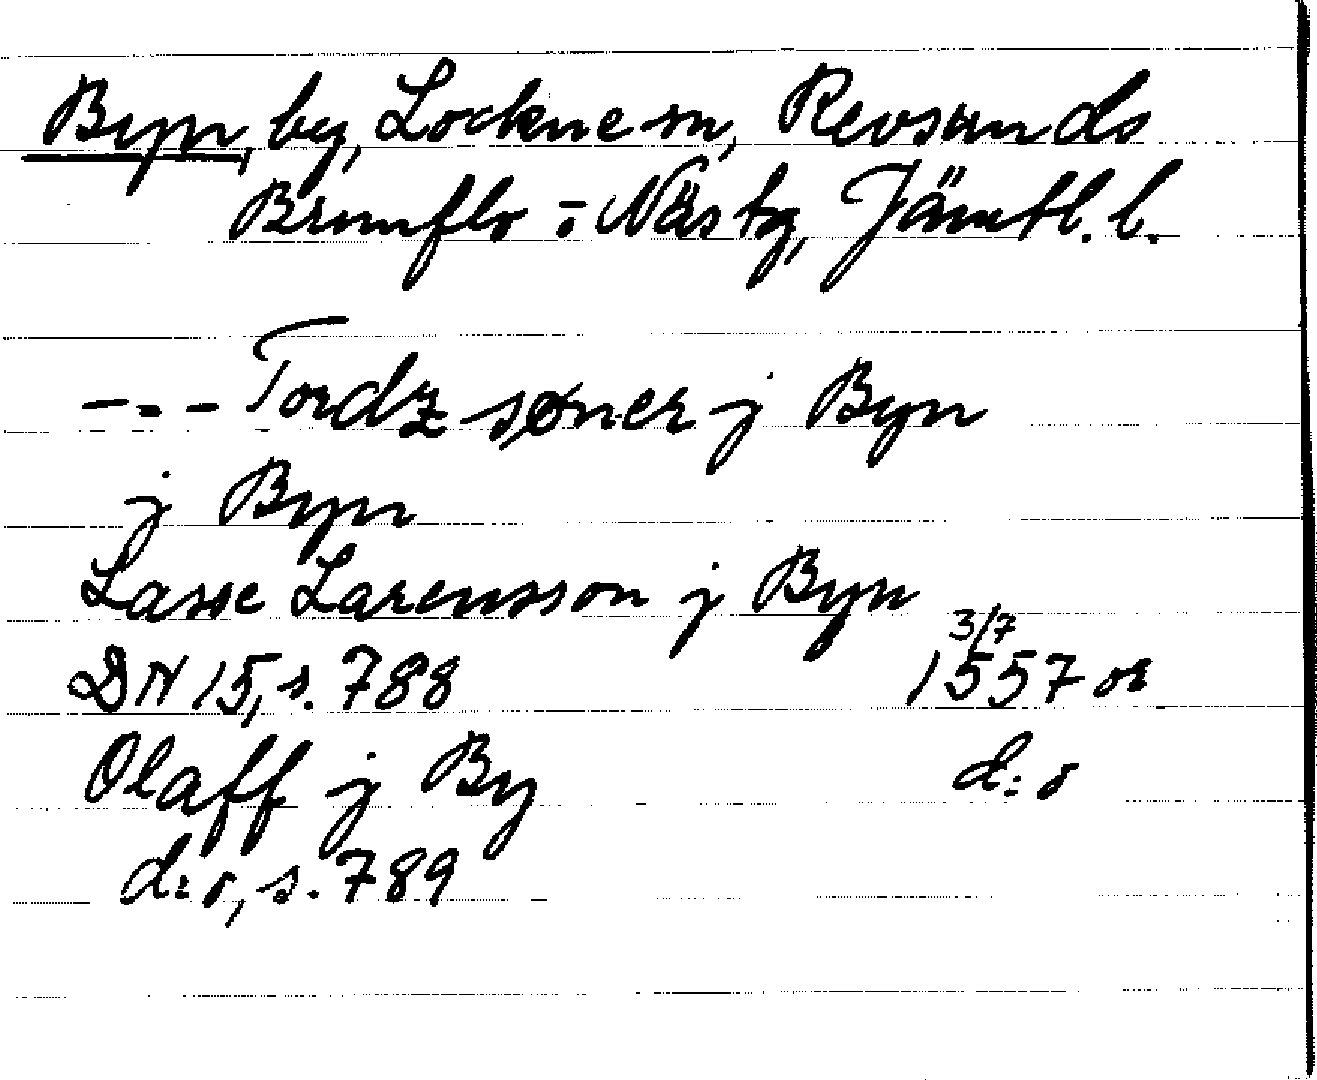 Byn, by, Lockne sn, Revsunds
Brunflo o Näs tg, Jämtl. l.
--- Tordz søner j Byn
j Byn
Lasse Larensson j Byn
3/7
DN 15, s. 788 1557 or
Olaff j By d:o
d:o, s. 789